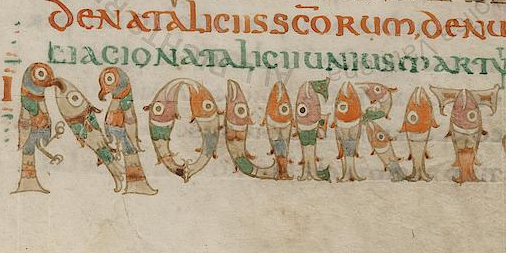 DENATALICIISSC̄ORUM, DENU
TIACIONATALICIIUNIUSMARTY
NOUERIT